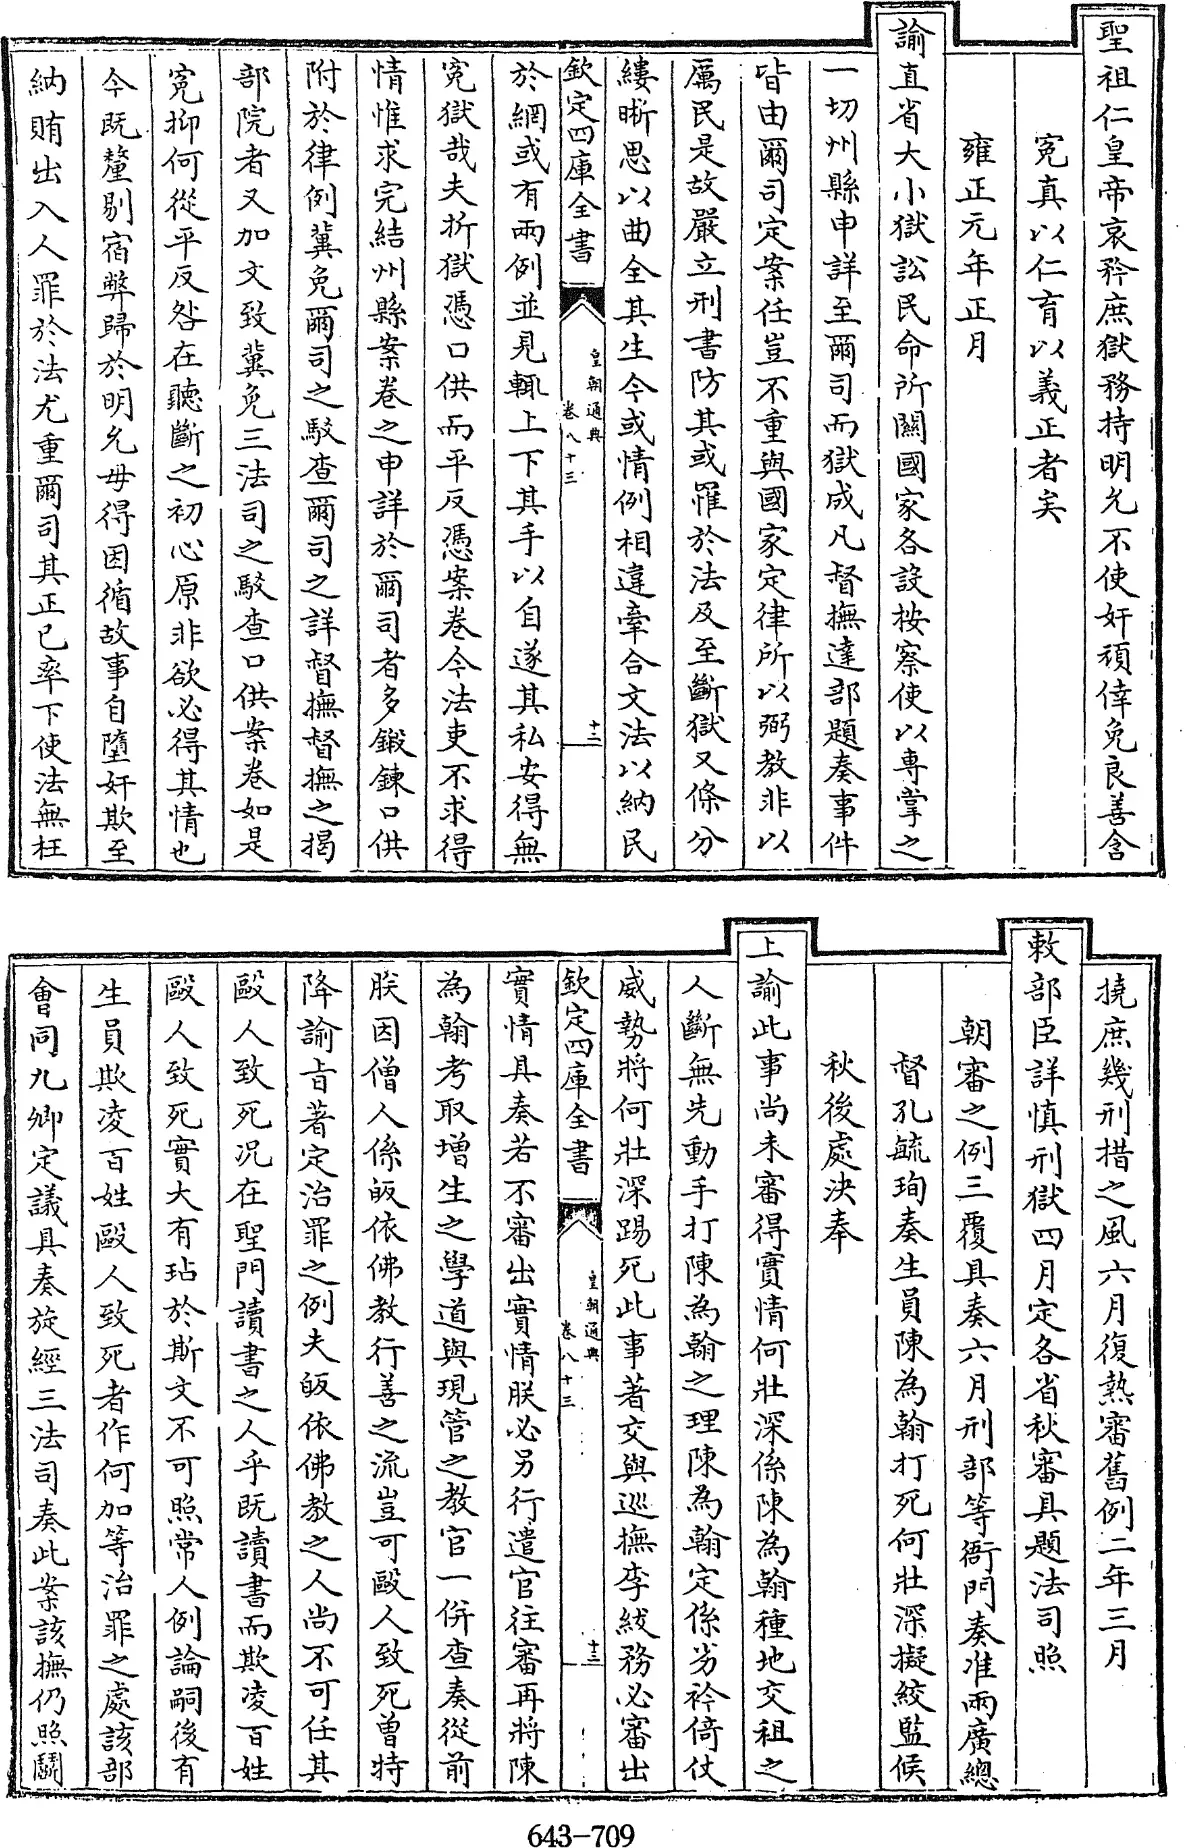 聖祖仁皇帝哀矜庶獄務持明允不使奸頑倖免良善含
冤真以仁育以義正者矣
雍正元年正月
諭直省大小獄訟民命所關國家各設按察使以專掌之
一切州縣申詳至爾司而獄成凡督撫達部題奏事件
皆由爾司定案任豈不重與國家定律所以弼教非以
厲民是故嚴立刑書防其或罹於法及至斷獄又條分
縷晰思以曲全其生今或情例相違牽合文法以納民
欽定四庫全書
皇朝通典
卷八十三
十二
於網或有兩例並見輒上下其手以自遂其私安得無
冤獄哉夫折獄憑口供而平反憑案卷今法吏不求得
情惟求完結州縣案卷之申詳於爾司者多鍛鍊口供
附於律例冀免爾司之駁查爾司之詳督撫督撫之揭
部院者又加文致冀免三法司之駁查口供案卷如是
冤抑何從平反咎在聽斷之初心原非欲必得其情也
今既釐剔宿弊歸於明允毋得因循故事自墮奸欺至
納賄出入人罪於法尤重爾司其正己率下使法無枉
撓庶幾刑措之風六月復熱審舊例二年三月
敕部臣詳慎刑獄四月定各省秋審具題法司照
朝審之例三覆具奏六月刑部等衙門奏准兩廣總
督孔毓珣奏生員陳為翰打死何壯深擬絞監候
秋後處決奉
上諭此事尚未審得實情何壯深係陳為翰種地交租之
人斷無先動手打陳為翰之理陳為翰定係劣衿倚仗
威勢將何壯深踢死此事著交與巡撫李紱務必審出
欽定四庫全書
皇朝通典
卷八十三
十三
實情具奏若不審出實情朕必另行遣官往審再將陳
為翰考取增生之學道與現管之教官一併查奏從前
朕因僧人係皈依佛教行善之流豈可毆人致死曾特
降諭旨著定治罪之例夫皈依佛教之人尚不可任其
毆人致死況在聖門讀書之人乎既讀書而欺凌百姓
毆人致死實大有玷於斯文不可照常人例論嗣後有
生員欺凌百姓毆人致死者作何加等治罪之處該部
會同九卿定議具奏旋經三法司奏此案該撫仍照鬭
643-709